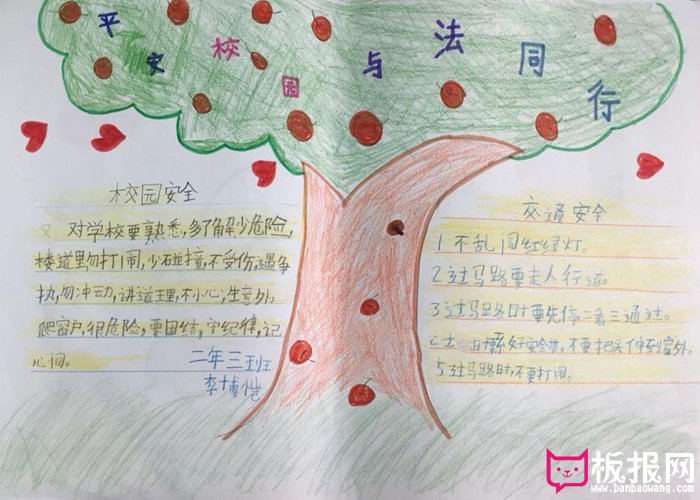 平安校园与法同行
校园安全
对学校要熟悉,多了解少危险,
楼道里勿打闹,少碰撞,不受伤,遇争
执,勿冲动,讲道理,不小心,生意外,
爬窗户,很危险,要团结,守纪律,记
心间。
二年三班
李博恺
交通安全
1 不乱闯红绿灯。
2 过马路要走人行道。
3 过马路时要先停二看三通过。
系好安全带,不要把头伸到窗外。
5 过马路时,不要打闹。
板报网
www.banbaowang.com